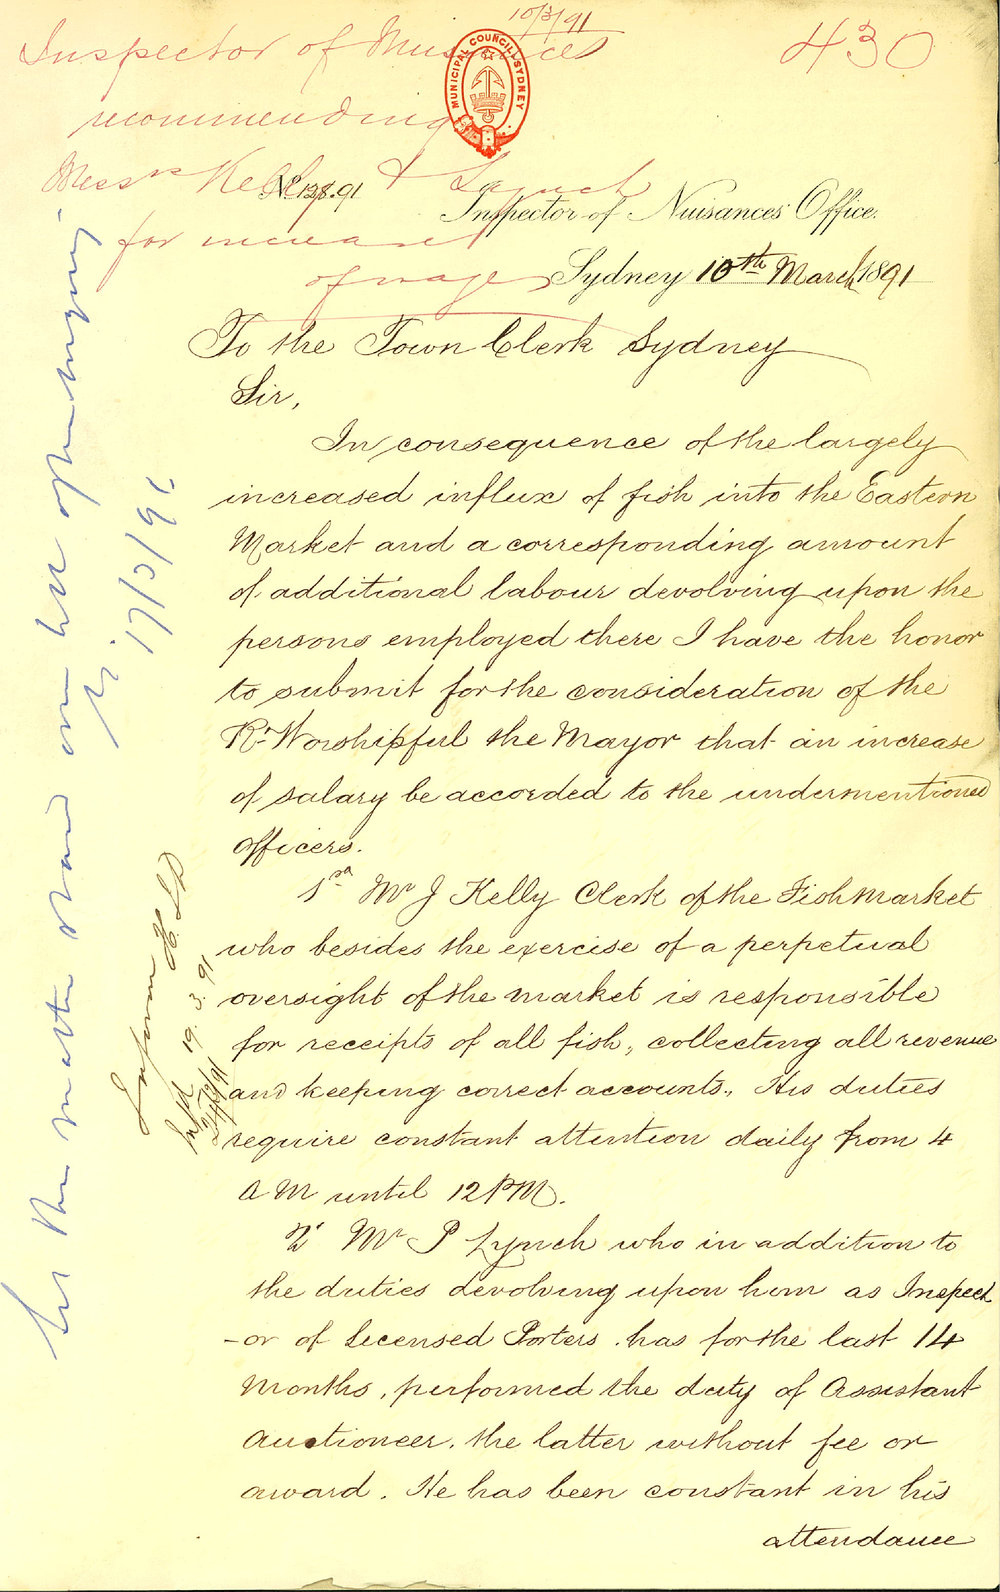 10/3/91
Inspector of Nuisances
430
recommending
Messrs Kelly & Lynch
for increase
of wages
MUNICIPAL COUNCIL SYDNEY
No 138.91
Inspector of Nuisances Office.
Sydney 10th March 1891
To the Town Clerk Sydney
Sir,
In consequence of the largely
increased influx of fish into the Eastern
Market and a corresponding amount
of additional labour devolving upon the
persons employed there I have the honor
to submit for the consideration of the
Rt Worshipful the Mayor that an increase
of salary be accorded to the undermentioned
officers.
Mr J Kelly Clerk of the Fishmarket
who besides the exercise of a perpetual
oversight of the market is responsible
for receipts of all fish, collecting all revenue
and keeping correct accounts., His duties
require constant attention daily from 4
AM until 12 PM.
Mr P Lynch who in addition to
the duties devolving upon him as Inspect
-or of Licensed Porters. has for the last 14
Months, performed the duty of Assistant
Auctioneer. the latter without fee or
award. He has been constant in his
attendance
Let the matter stand over
17/3/91
Inform
19.3.91